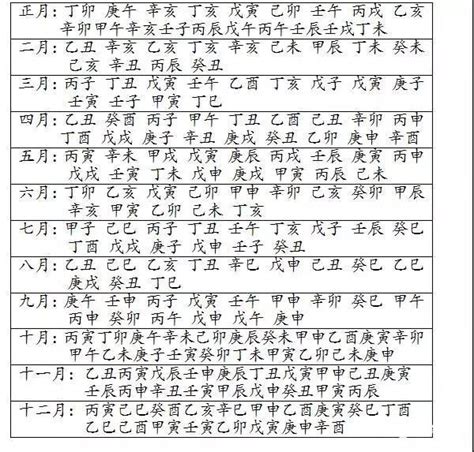 正月：丁卯 庚午 辛亥 丁亥 戊寅 己卯 壬午 丙戌 乙亥
辛卯甲午辛亥壬子丙辰戊午丙午壬辰壬戌丁未
二月：乙丑 辛亥 乙亥 丁亥 辛亥 己未 甲辰 丁未 癸未
己亥 辛丑 丙辰 癸丑
三月：丙子 丁丑 戊寅 壬午 乙酉 丁亥 戊子 戊寅 庚子
壬寅 壬子 甲寅 丁巳
四月：乙丑 癸酉 丙子 甲午 丁丑 乙丑 己丑 辛卯 丙申
丁酉 戊戌 庚子 辛丑 庚戌 癸丑 乙卯 庚申 辛酉
五月：丙寅 辛未 甲戌 戊寅 庚辰 丙戌 壬辰 庚寅 丙申
戊戌 壬寅 丁未 戊申 庚戌 甲寅 丙辰 己未
六月：丁卯 乙亥 戊寅 己卯 甲申 辛卯 己亥 癸卯 甲辰
辛亥 甲寅 乙卯 己未 丁亥
七月：甲子 己巳 丙子 丁丑 壬午 丁亥 戊子 壬辰 癸巳
丁酉 戊戌 庚子 戊申 壬子 癸丑
八月：乙丑 己巳 乙亥 丁丑 辛巳 戊申 己丑 癸巳 乙巳
庚戌 癸丑 丁巳
九月：庚午 壬申 丙子 戊寅 壬午 甲申 辛卯 癸巳 甲午
丙申 癸卯 丙午 戊申 戊午 庚申
十月：丙寅丁卯庚午辛未己卯庚辰癸未甲申乙酉庚寅辛卯
甲午乙未庚子壬寅癸卯丁未甲寅乙卯己未庚申
十一月：乙丑丙寅戊辰壬申庚辰丁丑戊寅甲申己丑庚寅
壬辰丙申辛丑壬寅甲辰戊申癸丑甲寅丙辰
十二月：丙寅己巳癸酉乙亥辛巳甲申乙酉庚寅癸巳丁酉
乙巳己酉甲寅壬寅乙卯戊寅庚申辛酉